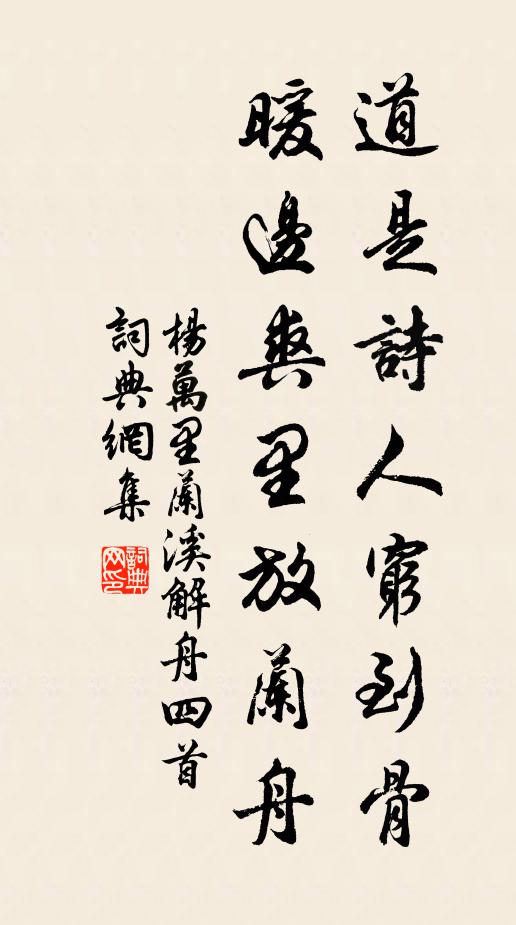 道是詩人窮到骨
暖邊爽里放蘭舟
楊萬里蘭溪解舟四首
詞典網集
詞典
网印